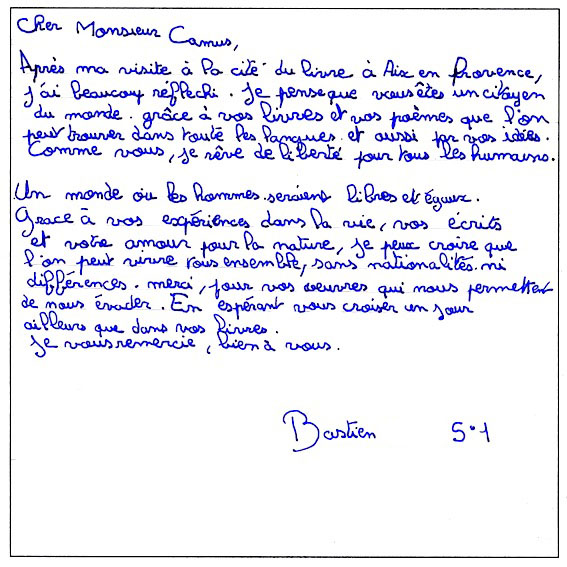 Cher Monsieur Camus,
Après ma visite à la cité du livre à Aix en provence,
j'ai beaucoup réflechi. Je pense que vous êtes un citoyen
du monde. grâce à vos livres et vos poèmes que l'on
peut trouver dans toute les langues. et aussi par vos idées.
Comme vous, je rêve de liberté pour tous les humains.
Un monde ou les hommes seraient libres et égaux.
Grace à vos expériences dans la vie, vos écrits
et votre amour pour la nature, je peux croire que
l'on peut vivre tous ensemble, sans nationalités ni
différences. merci, pour vos oeuvres qui nous permettent
de nous évader. En espérant vous croiser un jour
ailleurs que dans vos livres.
Je vous remercie, bien à vous.
Bastien 5°1